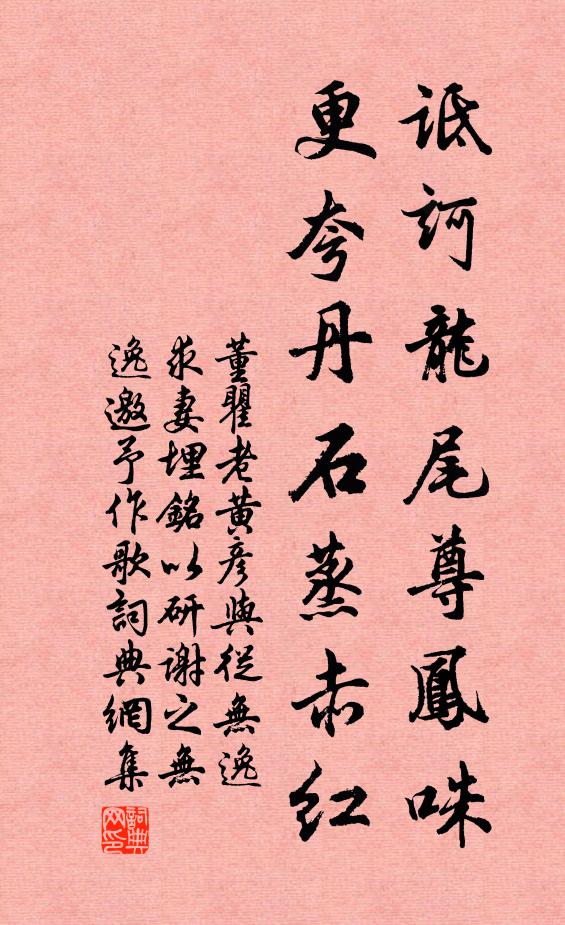 詆訶龍尾尊鳳咮
更夸丹石蒸赤紅
董瞿老黄彦與從無逸
求妻埋銘以研謝之無
逸邀予作歌詞典網集
詞典
网印